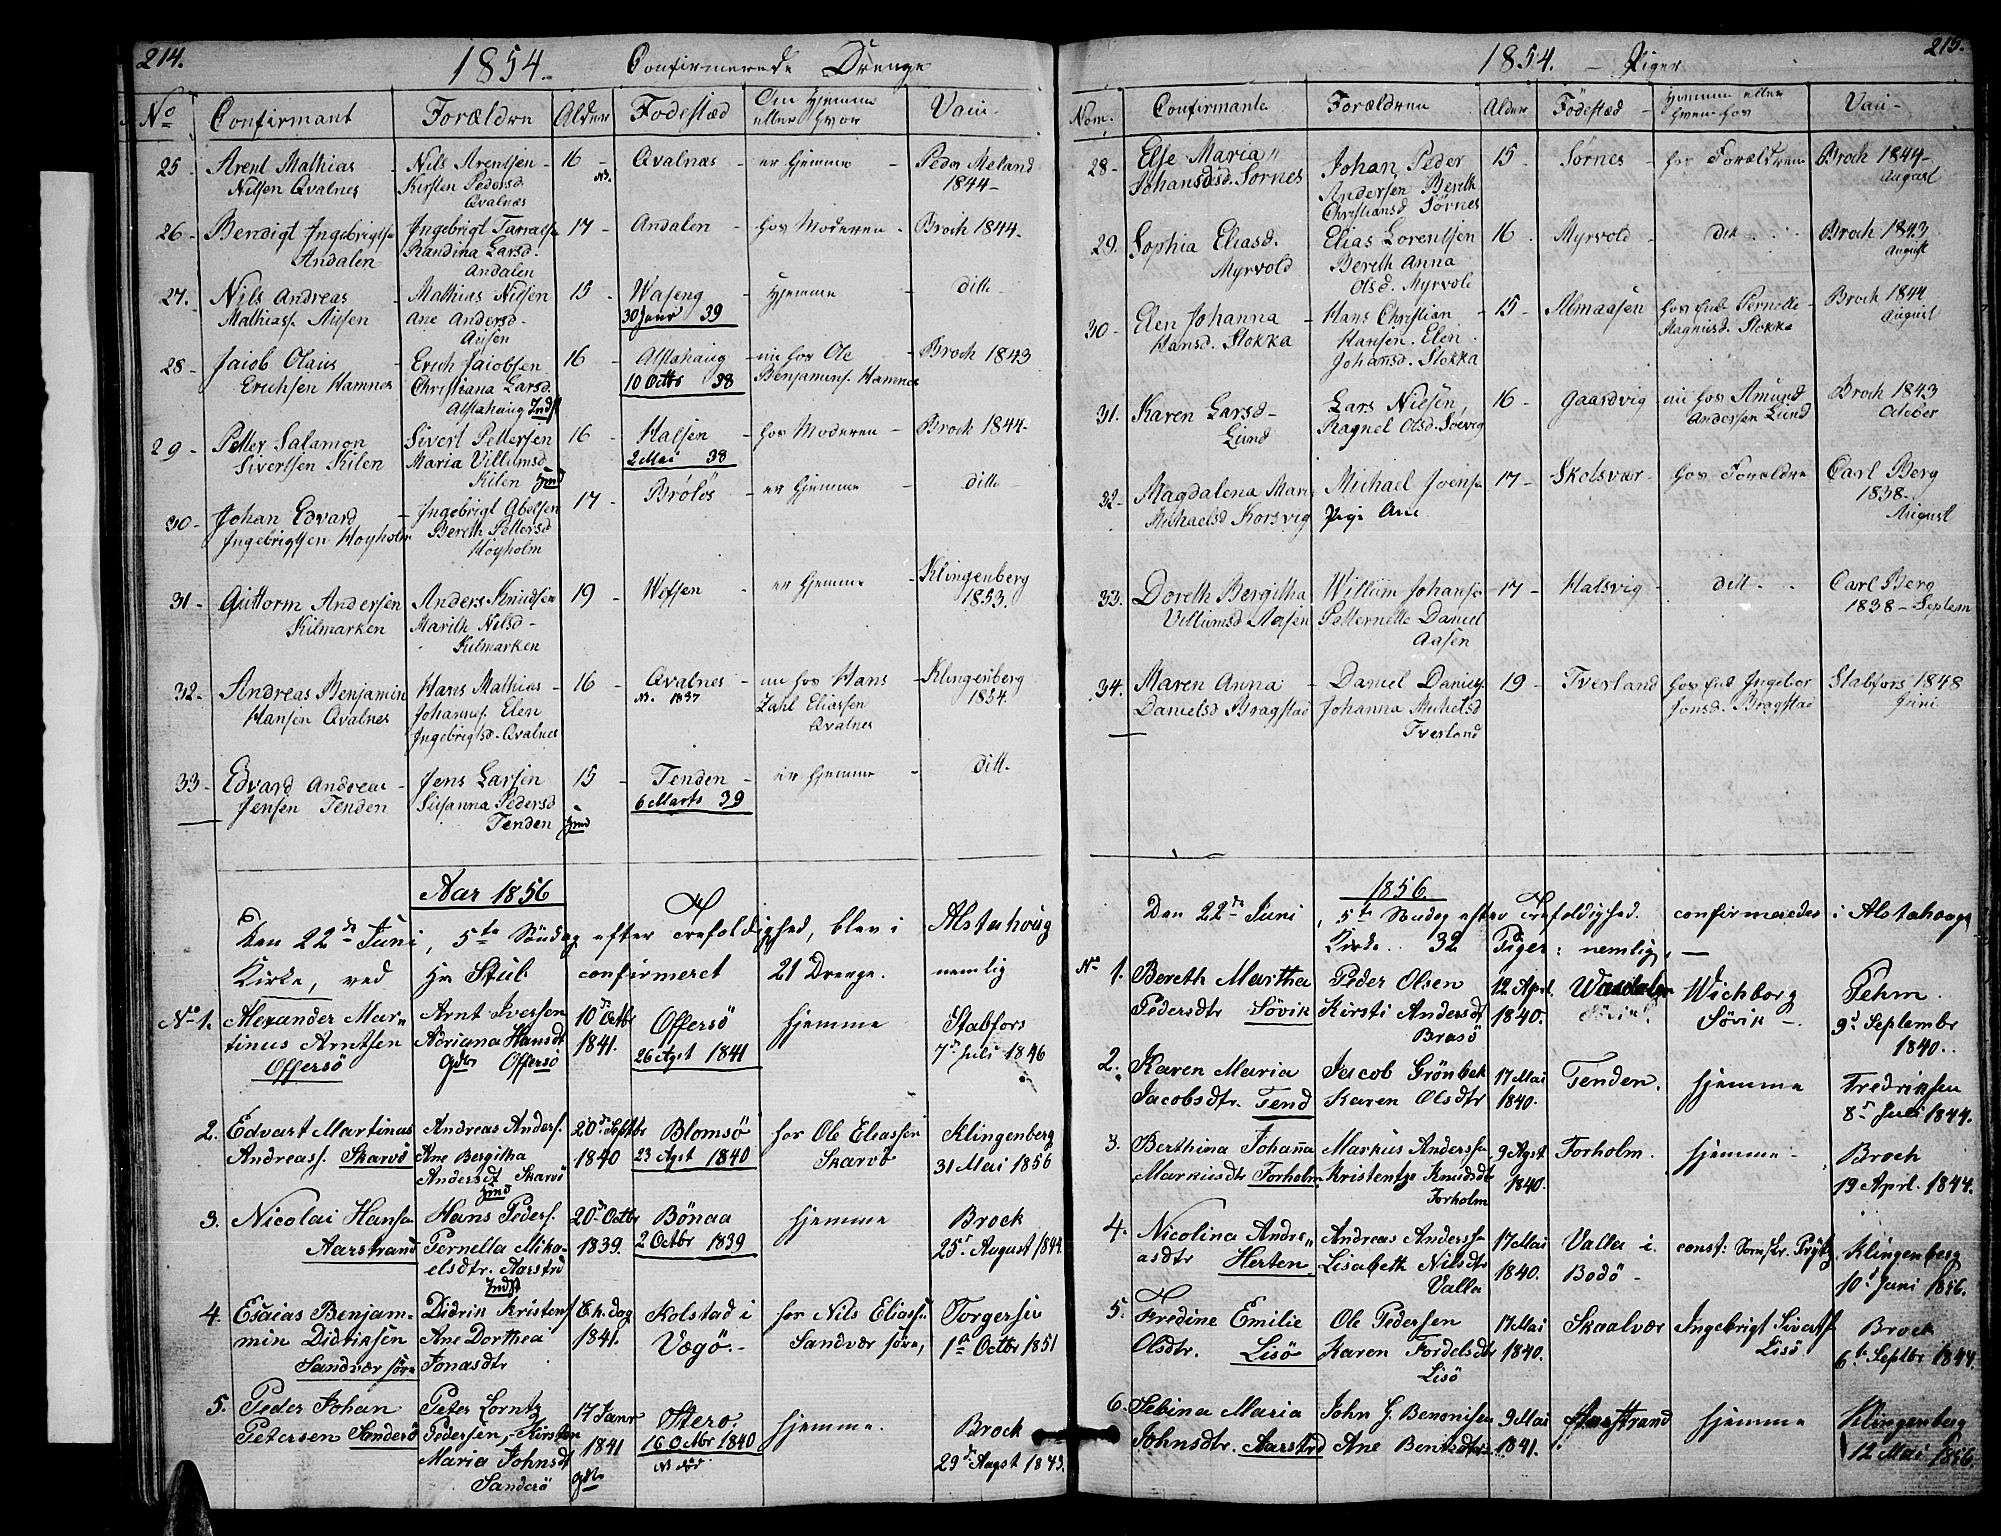 214.
1854. Confirmerede Drenge
No Confirmant Forældre Alder Fødested Om hjemme eller hvor Vacci-
25 Arent Mathias Nils Arentsen 16 Qvalnæs er hjemme Peder Meland
Nilsen Qvalnes Kirsten Pedersd NB. 1844-
Qvalnæs
26 Bendigt Ingebrigtse Ingebrigt Tarralse 17 Andalen hos Moderen Broch 1844.
Andalen Randina Larsd.
Andalen
27. Nils Andreas Mathias Nilsen 15 Waseng Hjemme ditte
Mathiass. Ausen Ane Andersd. 30 Janr 39
Ausen
28 Jacob Olaus Erich Jacobsen 16 Alstahaug nu hos Ole Broch 1843
Erichsen Hamnes Christiana Larsd. 10 Octbr 38 Benjamins. Hamnes
Alstahaug Indst
29 Petter Salamon Sivert Pettersen 16 Halsen hos Moderen Broch 1844
Sivertsen Kilen Maria Villumsd 2 Mai 38
Kilen Hmd
30 Johan Edvard Ingebrigt Abelsen 17 Bröløs er hjemme ditte
Ingebrigtsen Høyholm Bereth Pettersd
Høyholm
31 Guttorm Andersen Anders Knudsen 19 Wefsen er hjemme Klingenberg
Kilmarken Marith Nilsd 1853.
Kilmarken
32. Andreas Benjamin Hans Mathias 16 Qvalnes nu hos Hans Klingenberg
Hansen Qvalnes Johannes. Elen N. 1837 Zahl Eliassen 1854.
Ingebrigtsd. Qvalnes Qvalnes
33 Edvard Andreas Jens Larsen 15 Tenden er hjemme ditt
Jensen Tenden Susanna Pedersd 6 Marts 39
Tenden Hmd
Aar 1856
Den 22de Juni, 5te Søndag efter Trefoldighed, blev i Alstahoug
Kirke, ved Hr Stub confirmeret 21 Drenge. nemlig
No 1. Alexander Mar- Arnt Iversen 10de Octbr Offersö hjemme Stabfors
tinus Arntsen Adriana Hansdt 1841. 26 Agst 1841 7de Juli 1846
Offersö Gdbr Offersö
2. Edvart Martinus Andreas Anders. 20de Septbr Blomsö hos Ole Eliassen Klingenberg
Andreass. Skarvö Ane Bergitha 1840 23 Agst 1840 Skarvö 31 Mai 1856
Andersdt Skarvö
Hmd
3. Nicolai Hansen Hans Peders. 20de Octbr Bönaa hjemme Brock
Aarstrand Pernella Mika- 1839. 2 Octbr 1839 25de August 1844
elsdtr. Aarstrd
Indst
4. Esaias Benjam- Didrik Kristens Kolstad i hos Nils Eliass. Torgersen
min Didriksen Ane Dorthea 1841. Vægö. Sandvær söre, 1ste Octbr 1851
Sandvær söre Jonasdtr
5. Peder Johan Peter Lorntz 17 Janr Offerö. hjemme. Brock
Petersen Sanderö Pedersen, Kirsten 1841 16 Octbr 1840 29de Augst 1843.
Maria Johnsdt Gdbr
Sanderö
215.
1854. - Piger
Nom. Confirmante Forældrene Alder Födested Hjemme eller hvem hos Vaci-
28 Else Maria Johan Peder 15 Sørnes hos Forældrene Broch 1844
Johansdsd. Sornes Andersen Bereth August
Christiansd Sørnes
29. Sophia Eliasd. Elias Lorentsen 16 Myrvold dit Broch 1843
Myrvold Bereth Anna August
Olsd. Myrvold
30 Elen Johanna Hans Christian 15 Almaasen hos Enk Pernelle Broch 1844
Hansd. Stokka Hansen. Elen Magnusd. Stokka August
Johansd. Stokka
31. Karen Larsd Lars Nilsen 16 Gaardvig nu hos Amund Broch 1843
Lund Ragnel Olsd. Søevig Andersen Lund October
32 Magdalena Mari Michael Joensen 17 Skolsvær hos Forældre Carl Berg
Michaelsd Korsvig Pige Ane 1838-
August
33. Doreth Bergitha Willum Johanse 17 Halsvig ditt Carl Berg
Villumsd Aasen Petternette Daniel 1838 - Septem
Aasen
34. Maren Anna Daniel Daniels. 19 Tverland hos Enk Ingebor Stabfors 1848
Danielsd Bragstad Johanna Michelsd Jonsd. Bragstad Juni
Tverland
1856.
Den 22de Juni, 5te Søndag efter Trefoldighed. confirmeredes i Alstahoug
Kirke. 32 Piger: nemlig,
No 1. Bereth Martha Peder Olsen 12 Apri. Wichborg Fehm.
Pedersdtr Søvik Kirsti Andersdt 1840. Søvik Søvik 9de Septembr
Brasö 1840.
2. Karen Maria Jacob Grönbek 17 Mai Tenden. hjemme Fredriksen
Jacobsdtr. Tend Karen Olsdtr 1840. 8de Juli 1844.
3. Berthina Johana Markus Anderss. 9 Agst Forholm. hjemme Broch
Markusdtr Forholm. Kristentze Knudsdtr 1840. 19 April. 1844.
Forholm
4. Nicolina Andre- Andreas Anderss. 17 Mai Valla i const: Klingenberg
asdtr Herten. Lisabeth Nilsdtr 1840. Bodö 10de Juni 1856.
Valla
5. Fredine Emilie Ole Pedersen 17 Mai Skaalvær Ingebrigt Sivertss. Brock
Olsdtr. Lisö Karen Fordelsdtr 1840. Lisö 6te Septbr 1844.
Lisö
6. Sebina Maria John J. Benonisen 9 Mai Aarstrand hjemme Klingenberg
Johnsdtr. Aarstrd Ane Bentsdtr 1841. 12 Mai 1856.